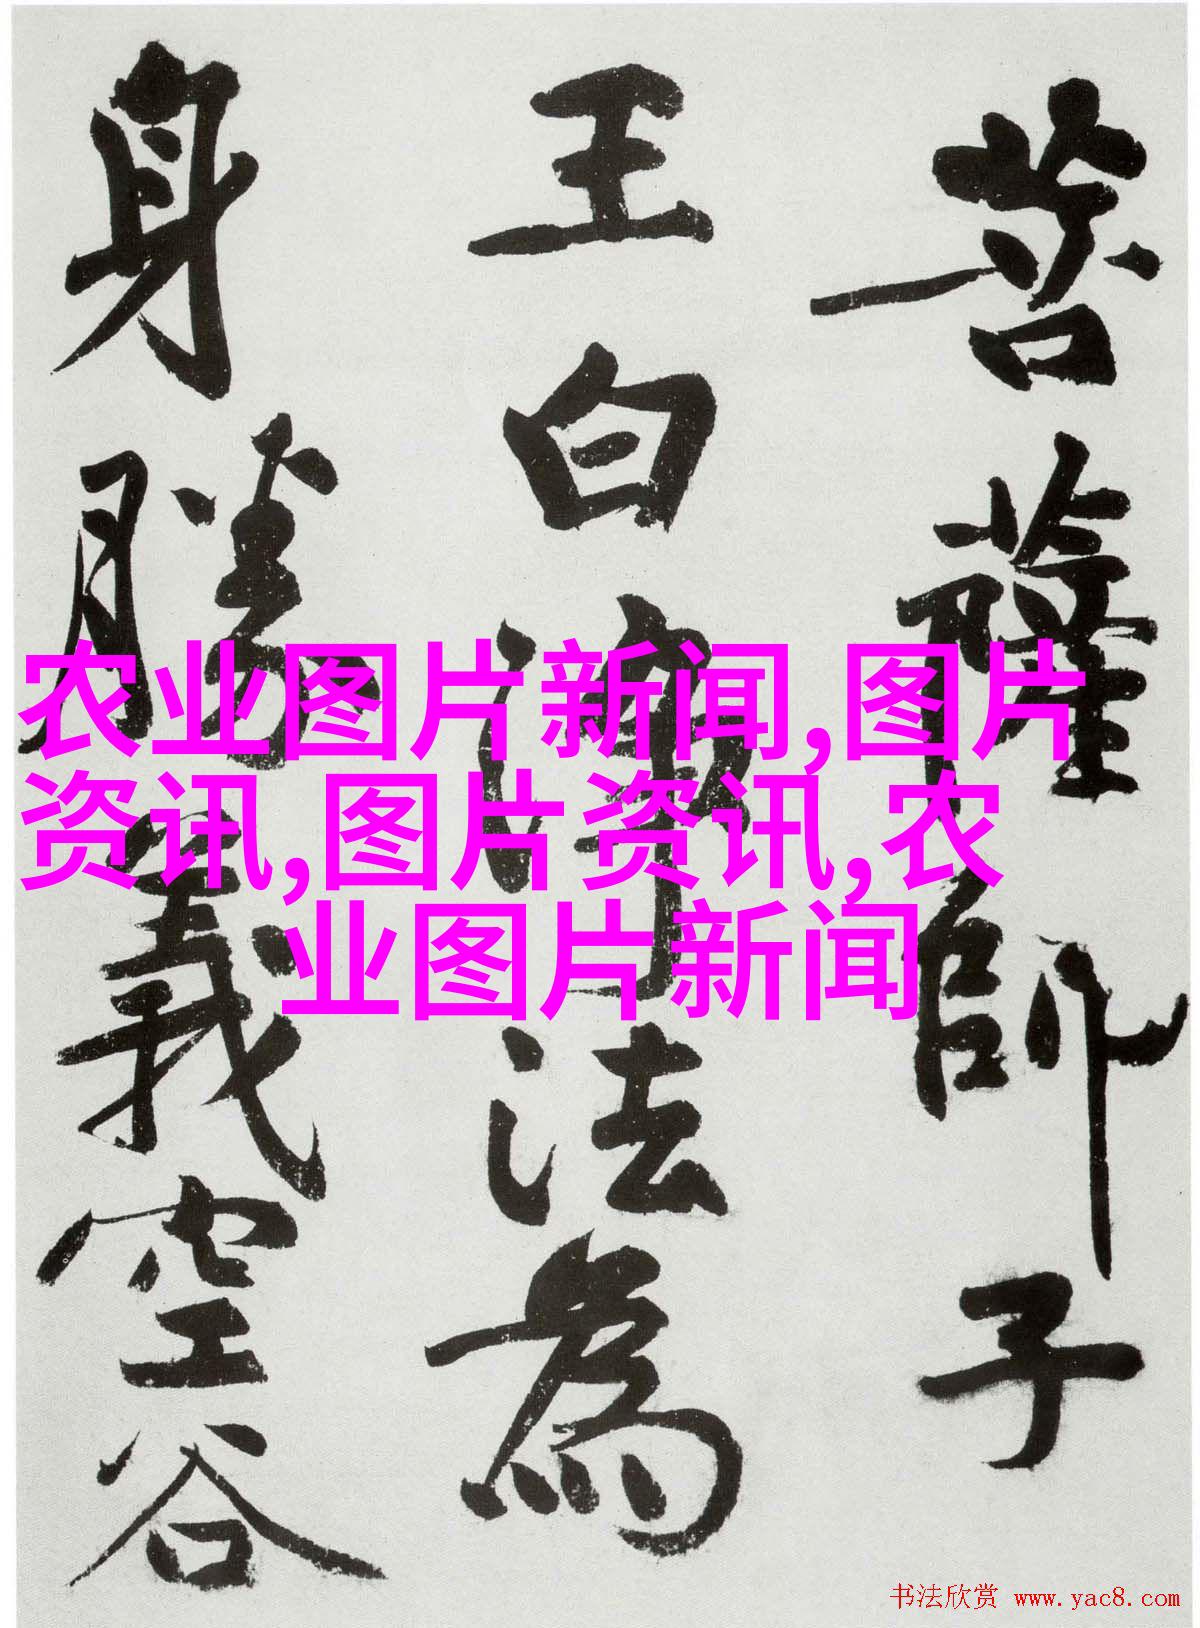 菩薩師子
王白淨法為
身勝義空谷
农业图片新闻,图片
资讯,图片资讯,农
业图片新闻
书法欣赏 www.yac8.com